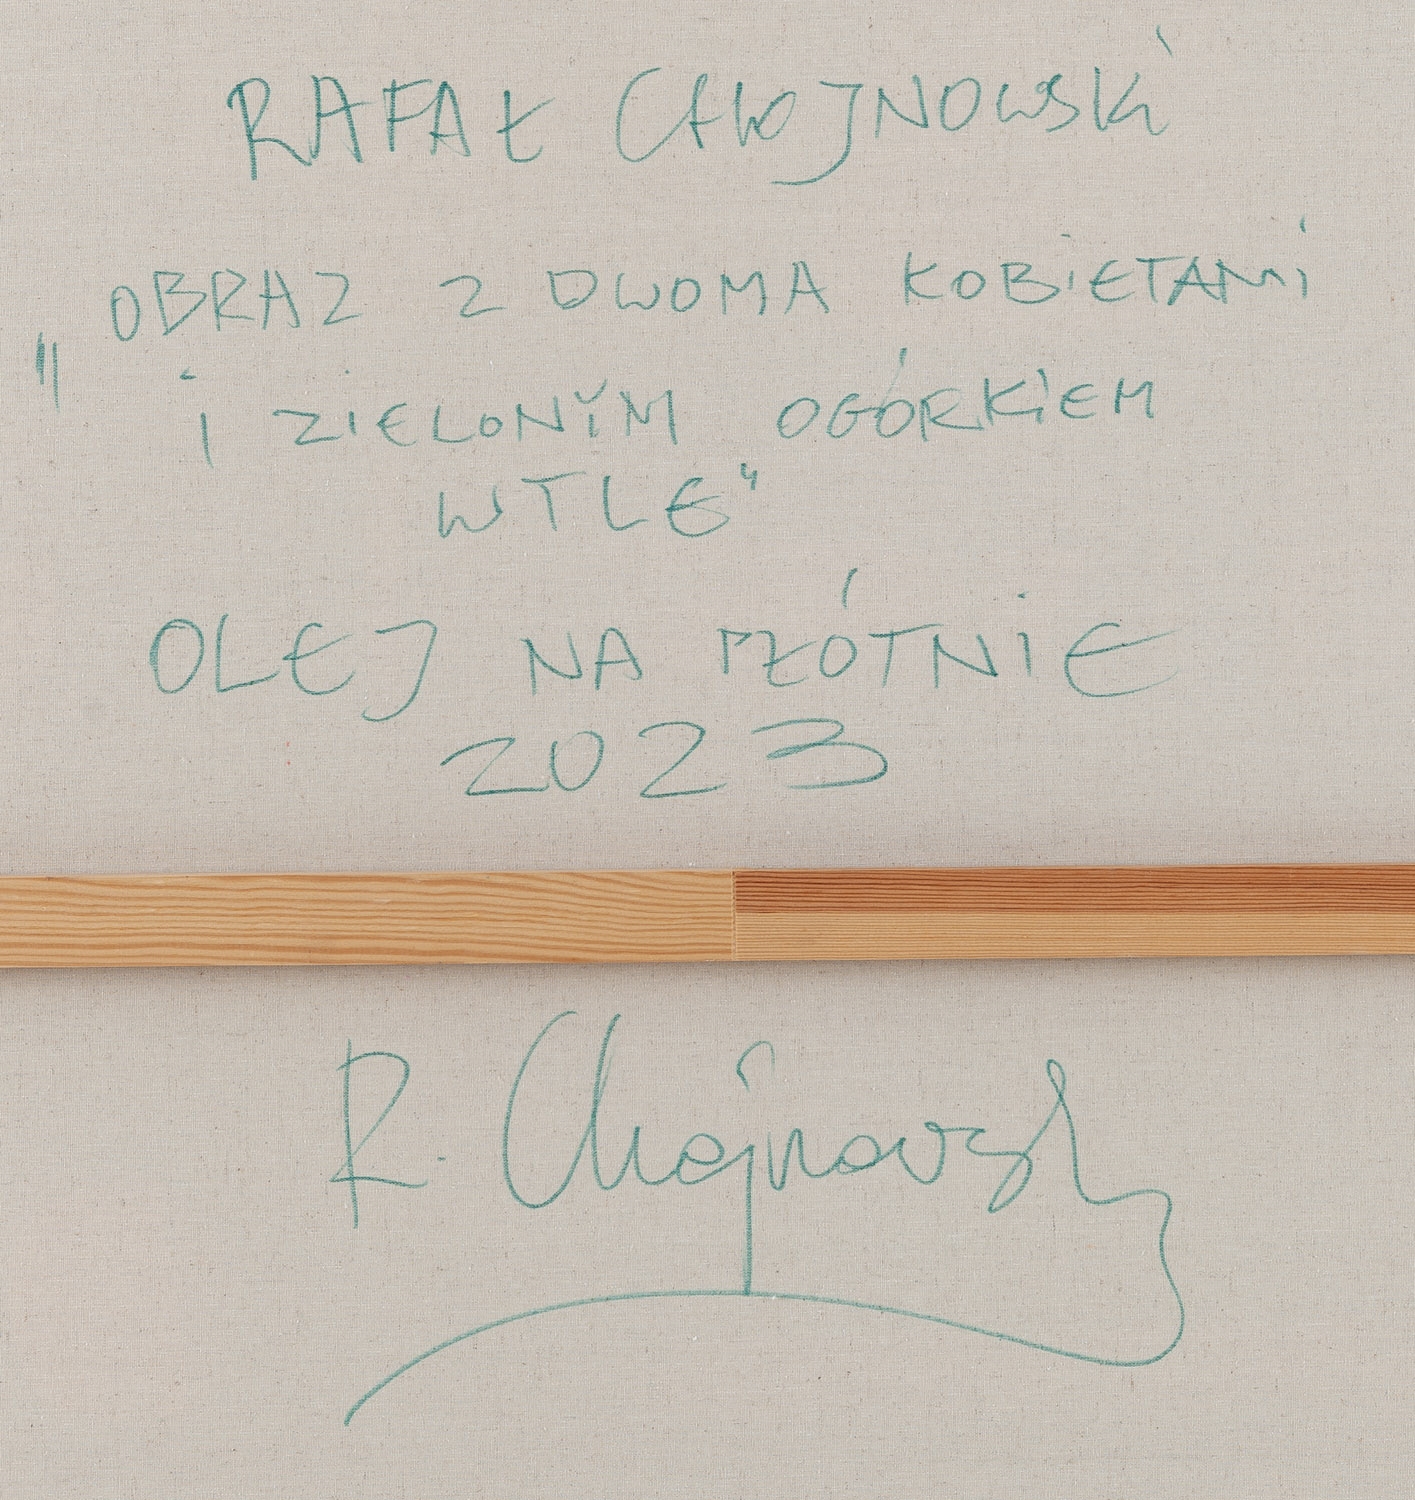 RAFAŁ CHOJNOWSKI
"OBRAZ Z DWOMA KOBIETAMI
I ZIELONYM OGÓRKIEM
W TLE"
OLEJ NA PŁÓTNIE
2023
R. Chojnowski